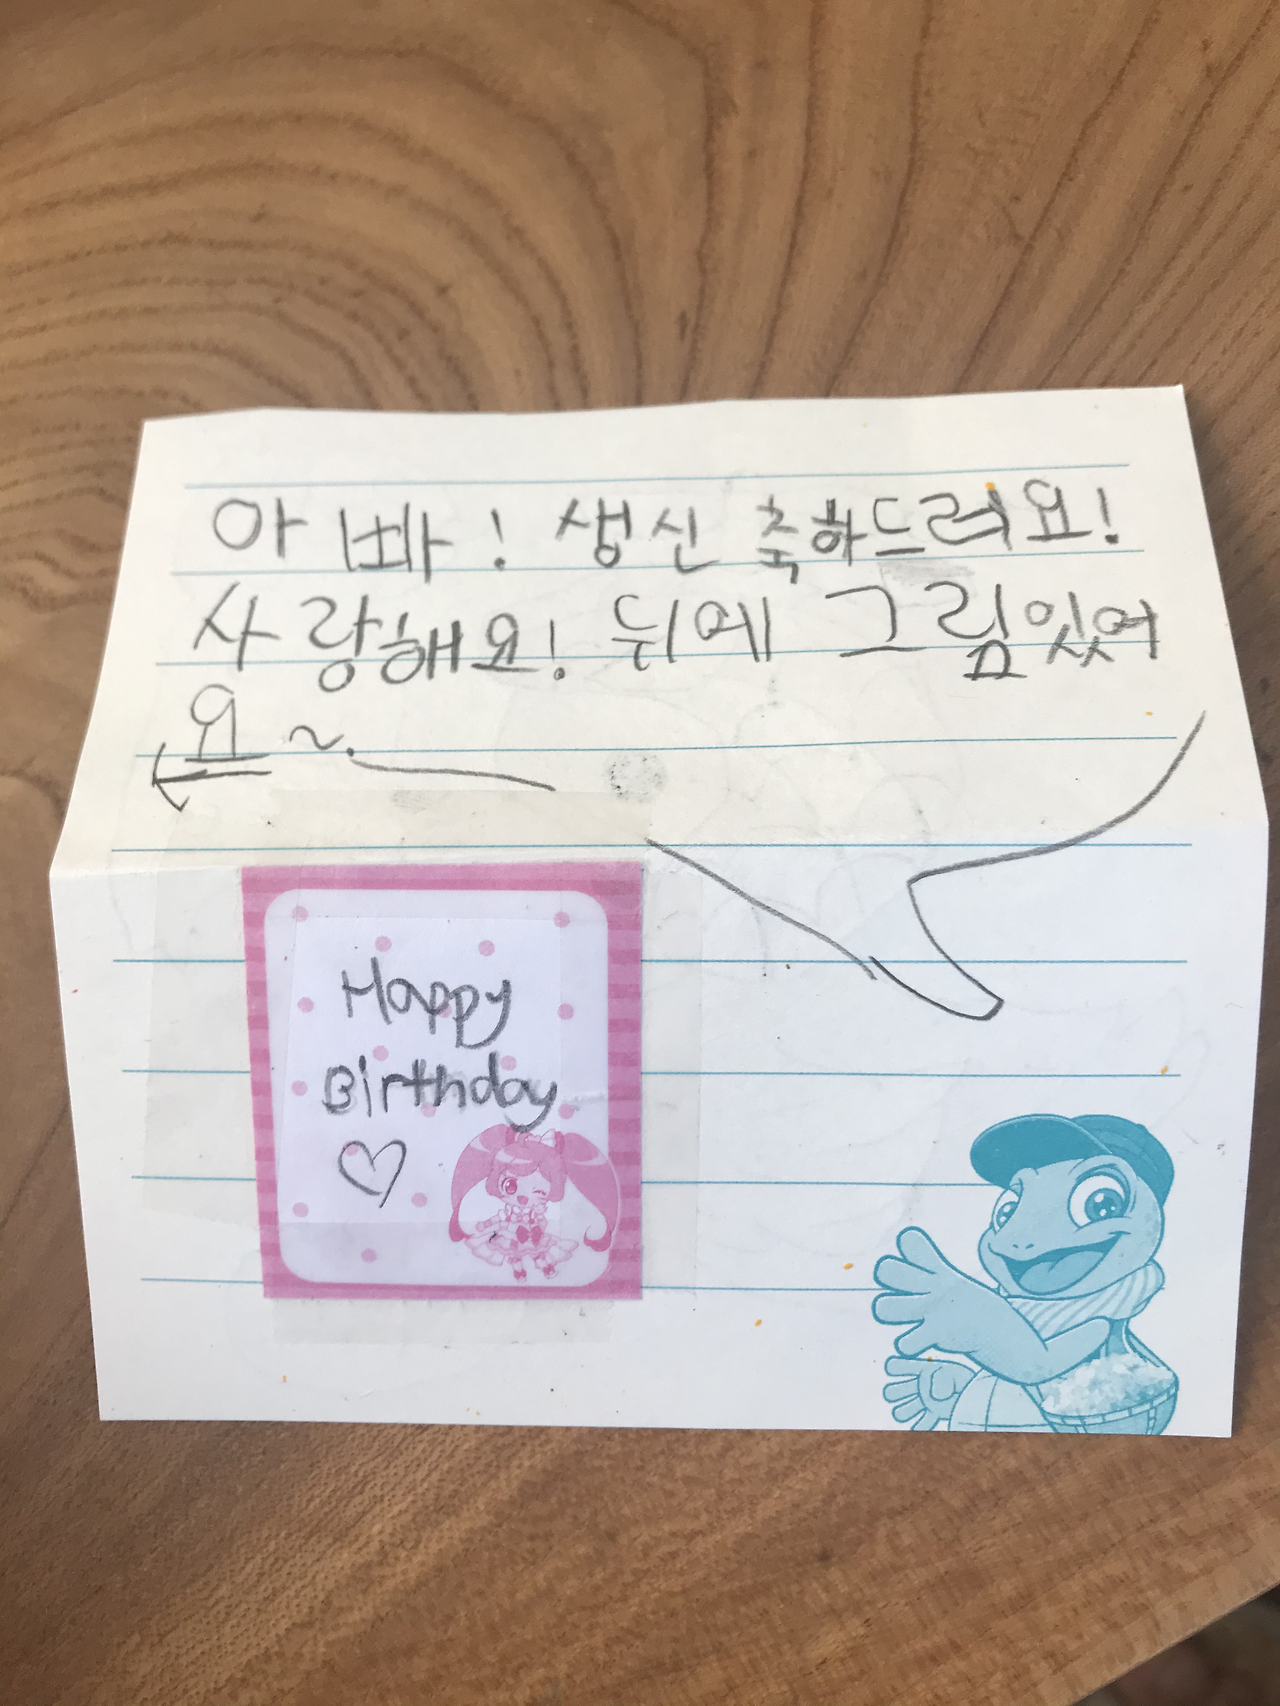 아빠! 생신 축하드려요!
사랑해요! 뒤에 그림있어
요~.
Happy
Birthday
♡